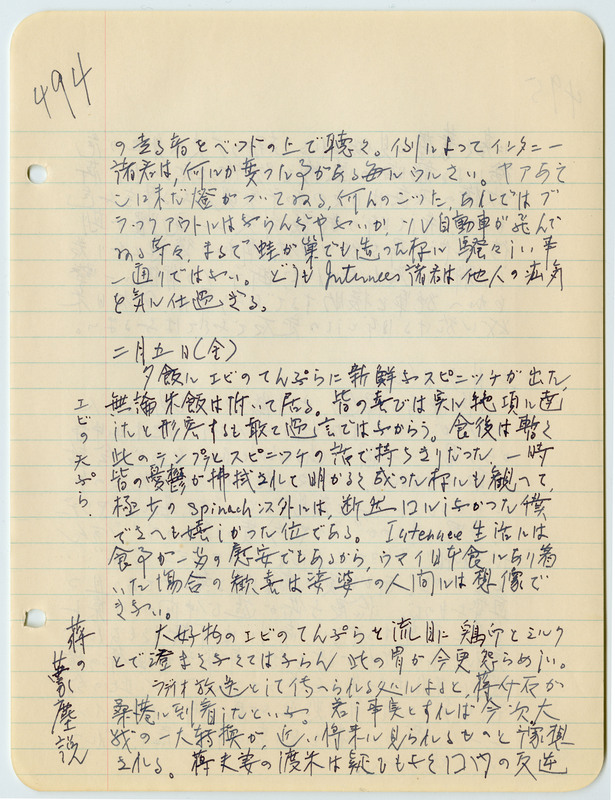 494
の走る音をベットの上で聴く。例によってインタニー
諸君は、何にか異った事がある毎にウルさい。ヤアあそ
こに未だ燈がついてゐる、何んのこった、あれではブ
ラックアウトにはならんぢやないか、ソレ自動車が飛んで
ゐる等々、まるで蛙が巣でも造った様に騒々しい事
一通りではない。どうもInternee諸君は他人の疝気
を気に仕過ぎる。
二月五日(金)
夕飯にエビのてんぷらに新鮮なスピニッチが出た、
無論米飯は附いて居る。皆の喜びは実に絶頂に達
したと形容するも敢て過言ではなからう。食後は暫く
此のテンプラとスピニッチの話で持ちきりだった。一時
皆の憂鬱が拂拭されて明かるく成った様にも観へて、
極少のspinach以外には、断然口にしなかった僕
でさへも嬉しかった位である。Internee生活には
食事が一番の慰安でもあるから、ウマイ日本食にあり着
いた場合の歓喜は娑婆の人間には想像で
きない。
大好物のエビのてんぷらを流目に鶏卵とミルク
とで澄まさなくてはならん此の胃が今更怨らめしい。
ラヂオ放送として伝へられる処によると、蒋介石が
桑港に到着したといふ。若し事実とすれば今次大
戦の一大転換が、近い将来に見られるものと予想
される。蒋夫妻の渡米は疑ひもなく
エビの天ぷら.
蒋の蒙塵説